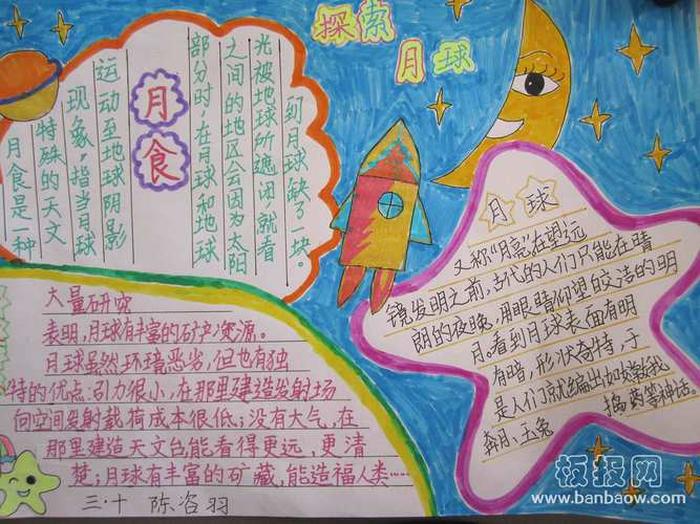 探索
月球
月食
月食是一种
特殊的天文
现象,指当月球
运动至地球阴影
部分时,在月球和地球
之间的地区会因为太阳
光被地球所遮闭就看
到月球缺了一块。
月球
又称“月亮”在望远
镜发明之前,古代的人们只能在晴
朗的夜晚,用眼睛仰望皎洁的明
月。看到月球表面有明
有暗,形状奇特,于
是人们就编出如嫦娥
奔月、玉兔捣药等神话。
大量研究
表明,月球有丰富的矿产资源。
月球虽然环境恶劣,但也有独
特的优点:引力很小,在那里建造发射场
向空间发射载荷成本很低;没有大气,在
那里建造天文台能看得更远,更清
楚;月球有丰富的矿藏,能造福人类……
三·十 陈咨羽
板报网
www.banbaow.com